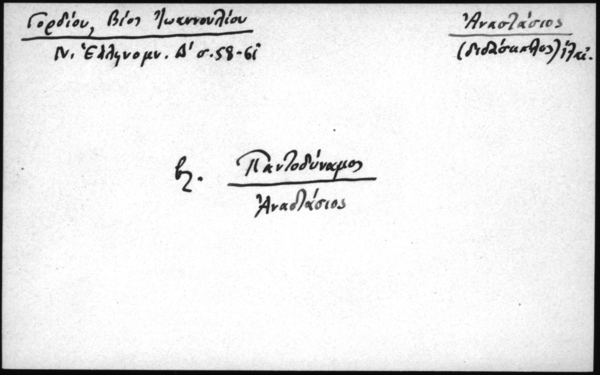 Γορδίου, Βίος Ἰωαννουλίου
Ν. Ἑλληνομν. Δ' σ. 58-61
Ἀναστάσιος
(διδάσκαλος)
βλ. Παντοδύναμος
Ἀναστάσιος